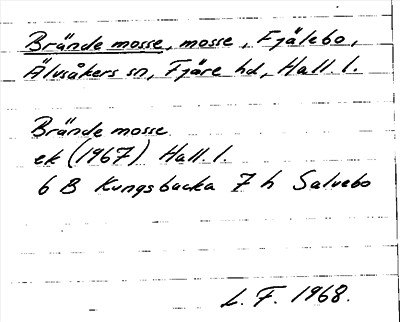 Brände mosse, mosse, Fjälebo,
Älvsåkers sn, Fjäre hd, Hall. l.
Brände mosse
ek (1967) Hall. l.
6 B Kungsbacka 7 h Salvebo
L. F. 1968.